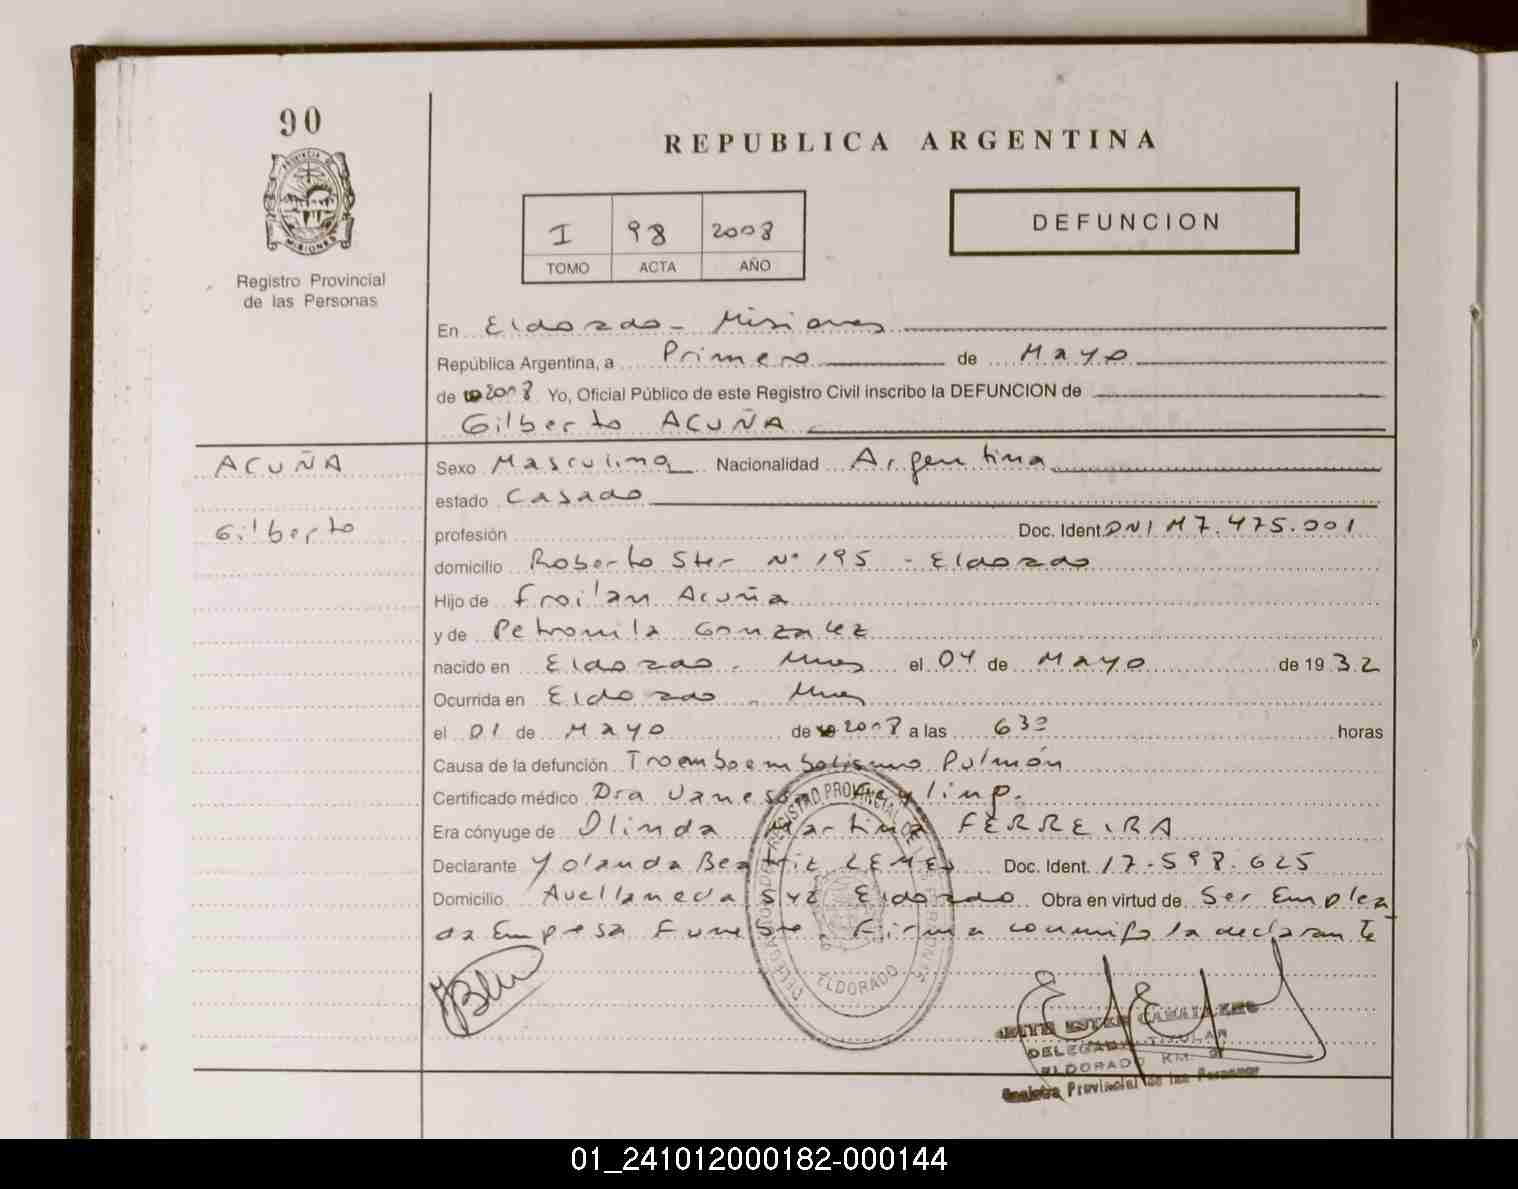 90
PROVINCIA DE
MISIONES
Registro Provincial
de las Personas
REPUBLICA ARGENTINA
I 98 2008
TOMO ACTA AÑO
DEFUNCION
En Eldorado - Misiones
República Argentina, a Primero de Mayo
de 2008 Yo, Oficial Público de este Registro Civil inscribo la DEFUNCION de
Gilberto ACUÑA
ACUÑA
Gilberto
Sexo Masculino Nacionalidad Argentina
estado Casado
profesión Doc. Ident. DNI M7.475.001
domicilio Roberto Ster Nº 195 - Eldorado
Hijo de Froilan Acuña
y de Petronila Gonzalez
nacido en Eldorado - Mnes el 04 de Mayo de 1932
Ocurrida en Eldorado - Mnes
el 01 de Mayo de 2008 a las 630 horas
Causa de la defunción Troemboembolismo Pulmón
Certificado médico Dra Vanesa
Era cónyuge de Olinda Martina FERREIRA
Declarante Yolanda Beatriz LEMES Doc. Ident. 17.598.625
Domicilio Avellaneda S/Z Eldorado Obra en virtud de Ser Emplea
da Empresa Funebre. Firma conmigo la declarante
DELEGADA TITULAR
ELDORADO KM. 9
Registro Provincial de las Personas
REGISTRO PROVINCIAL DE LAS PERSONAS
ELDORADO
01_241012000182-000144